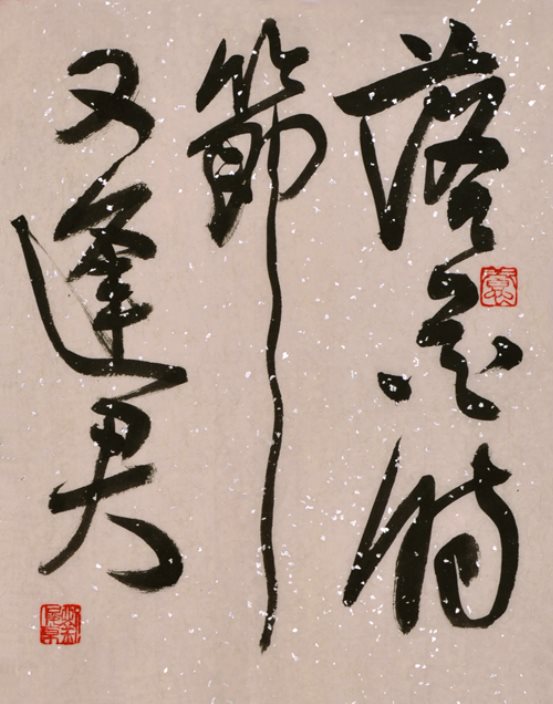 落花時
節
又逢君